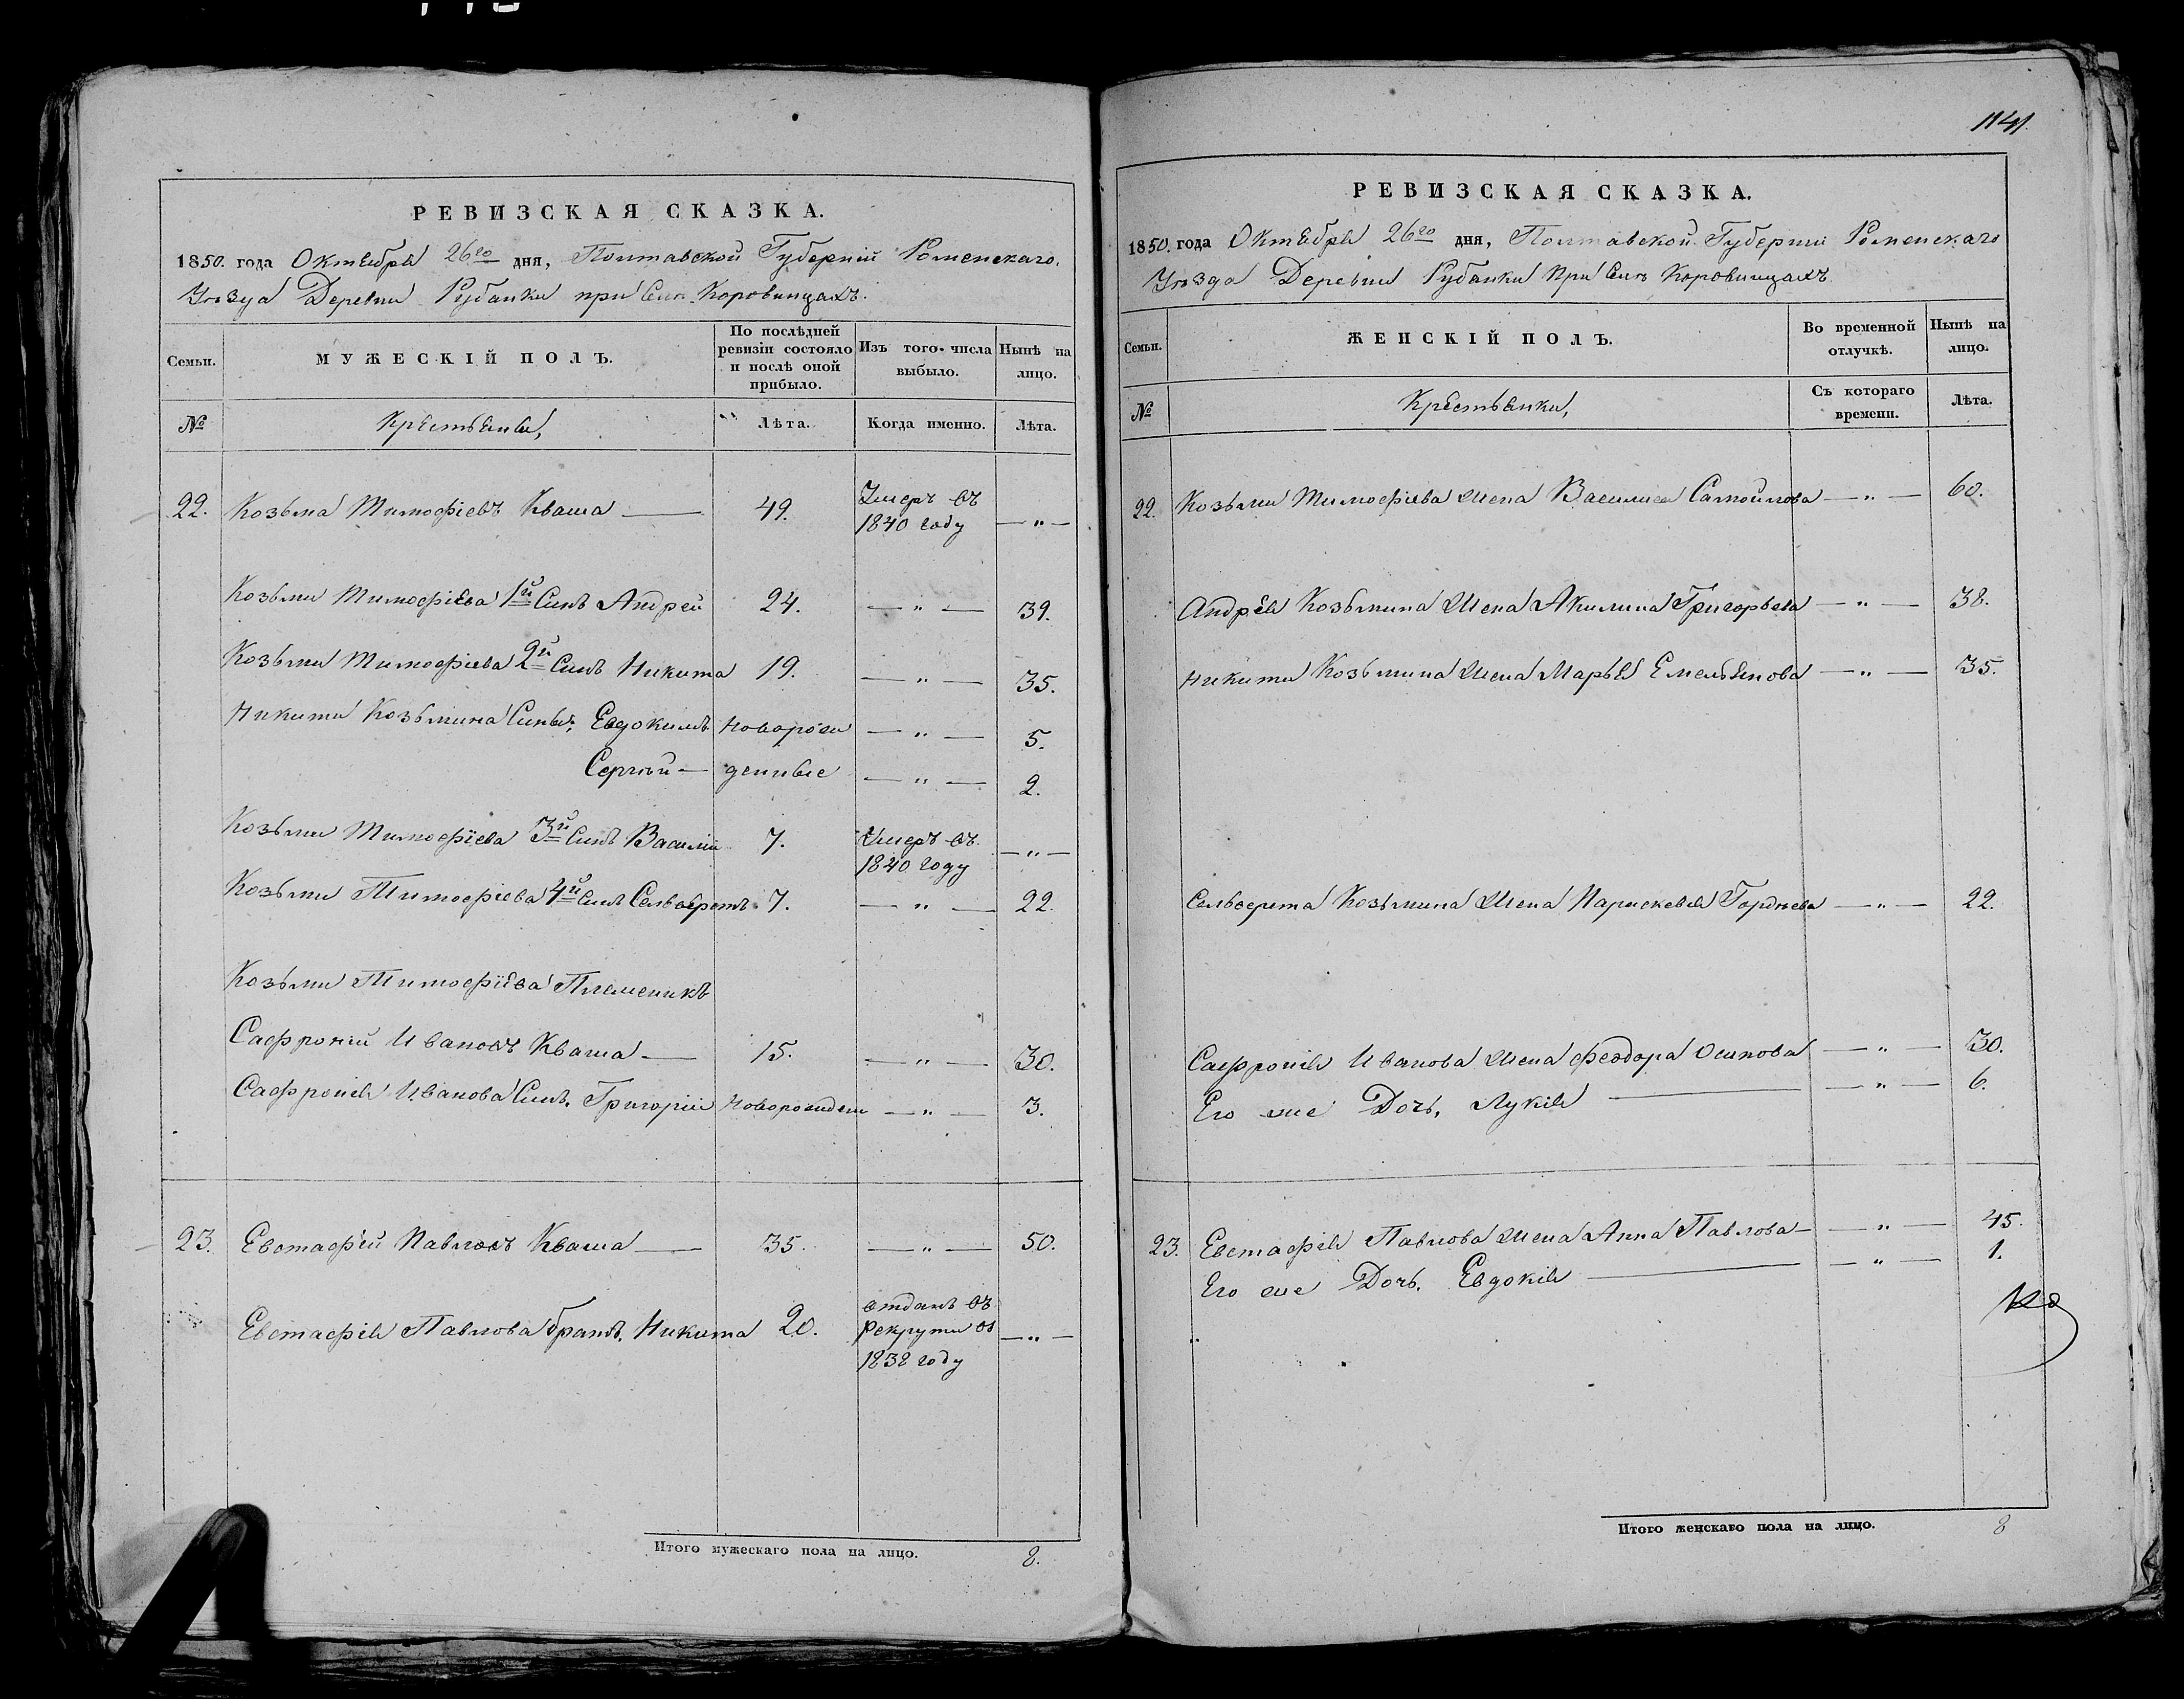 РЕВИЗСКАЯ СКАЗКА.
1850. года Октября 26го дня, Полтавской Губерніи Роменскаго.
Уѣзда Деревни Рубанки при Селѣ Коровинцахъ.
Семьи.
МУЖЕСКІЙ ПОЛЪ.
По послѣдней ревизіи состояло и послѣ оной прибыло.
Изъ того числа выбыло.
Нынѣ на лицо.
№
Крестьяне,
Лѣта.
Когда именно.
Лѣта.
22. Козьма Тимофіевъ Кваша — 49. Умеръ въ 1840 году — „ —
Козьми Тимофіева 1й Синъ Андрей 24. — „ — 39.
Козьми Тимофіева 2й Синъ Никита 19. — „ — 35.
Никити Козьмина Сины, Евдокимъ Новорож — „ — 5.
Сергѣй — денные — „ — 2.
Козьми Тимофіева 3й Синъ Василій 7. Умеръ въ 1840 году — „ —
Козьми Тимофіева 4й Синъ Сельвестъ 7. — „ — 22.
Козьми Тимофіева Племеникъ
Сафроній Ивановъ Кваша — 15. — „ — 30.
Сафронія Иванова Синъ, Григорій Новорожден — „ — 3.
23. Евстафій Павловъ Кваша — 35. — „ — 50.
Евстафія Павлова братъ, Никита 20. отданъ въ Рекрути въ 1838 году — „ —
Итого мужескаго пола на лицо. 8.
1141
РЕВИЗСКАЯ СКАЗКА.
1850. года Октября 26го дня, Полтавской Губерніи Роменскаго
Уѣзда Деревни Рубанки при Селѣ Коровинцахъ
Семьи.
ЖЕНСКІЙ ПОЛЪ.
Во временной отлучкѣ.
Нынѣ на лицо.
№
Крестьянки,
Съ котораго времени.
Лѣта.
22. Козьми Тимофіева жена Василиса Самойлова — „ — 60.
Андрея Козьмина жена Акилина Григорьева — „ — 38.
Никити Козьмина жена Марья Емельянова — „ — 35.
Сельверста Козьмина жена Парискевія Гордѣева — „ — 22.
Сафронія Иванова жена Феодора Осипова — „ — 30.
Его же Дочь, Лукія — „ — 6.
23. Евстафія Павлова жена Анна Павлова — „ — 45.
Его же Дочь, Евдокія — „ — 1.
Итого женскаго пола на лицо. 8